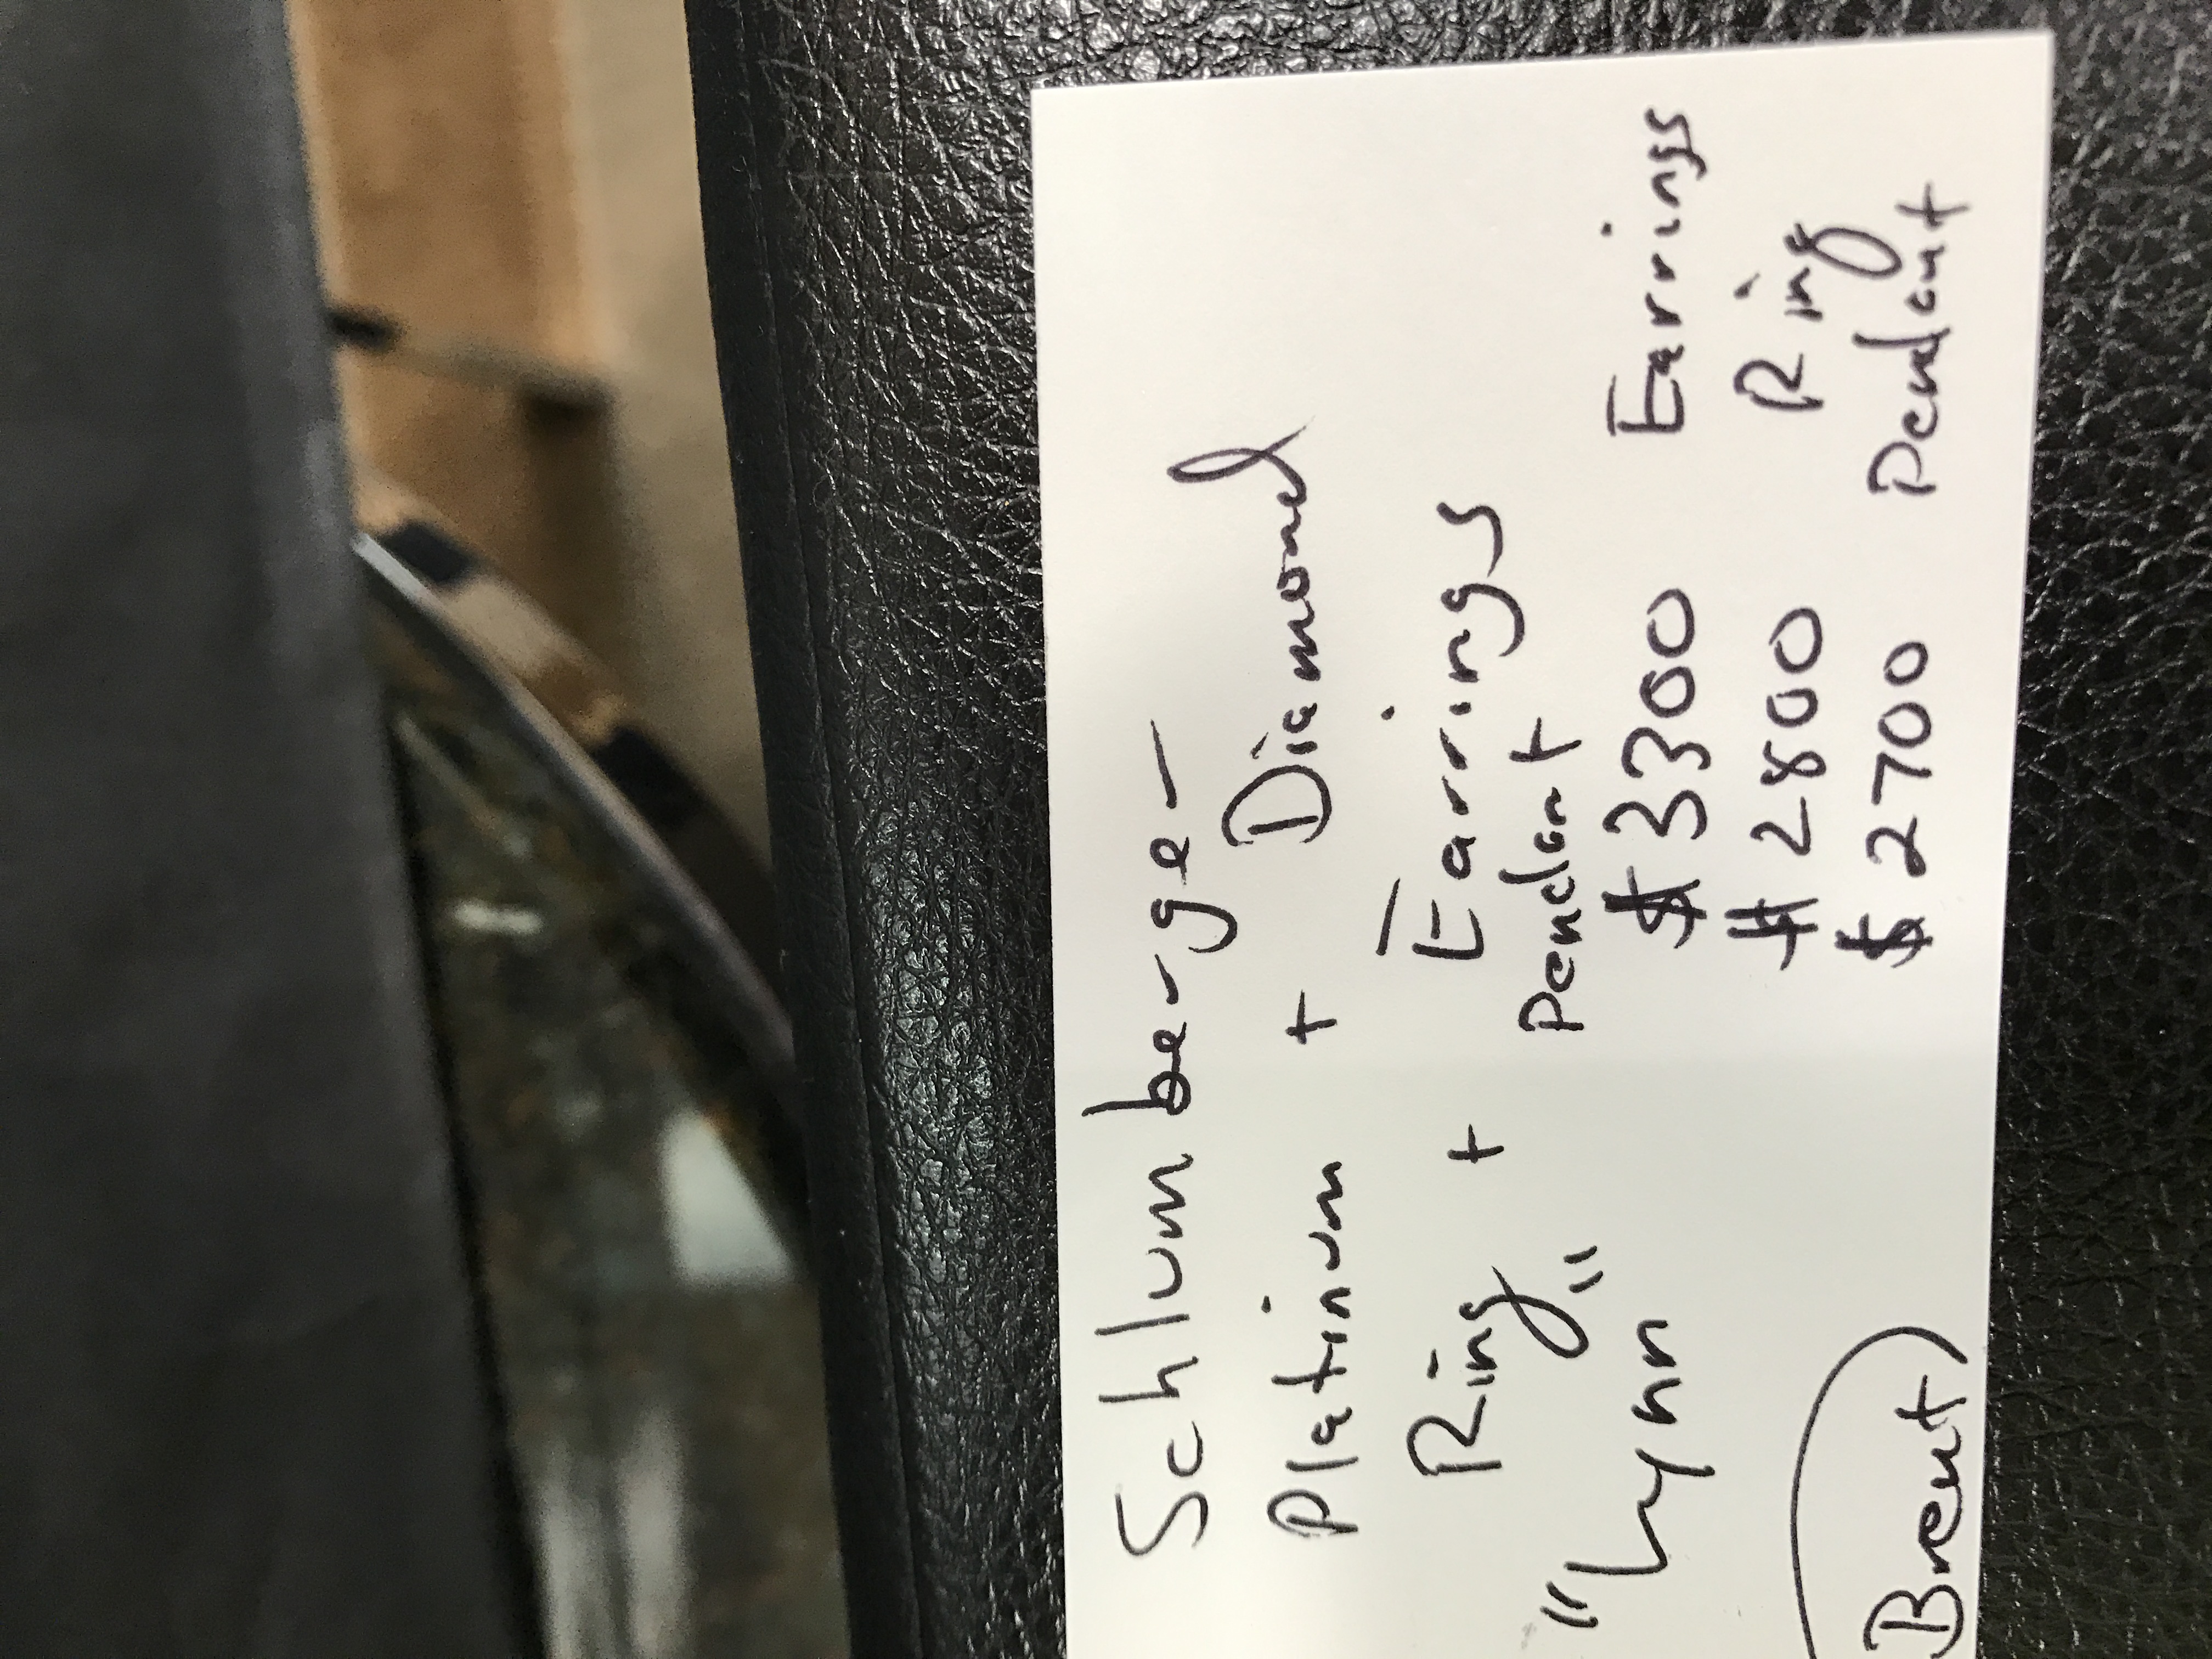 Schlumberger
Platinum + Diamond
Ring + Earrings
Pendant
"Lynn"
$3300 Earrings
$2800 Ring
$2700 Pendant
Brent